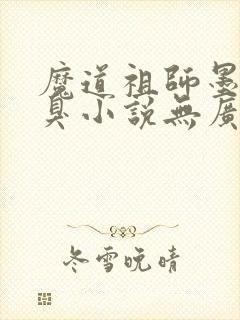 魔道祖師墨
臭小說無廣
冬雪晚晴